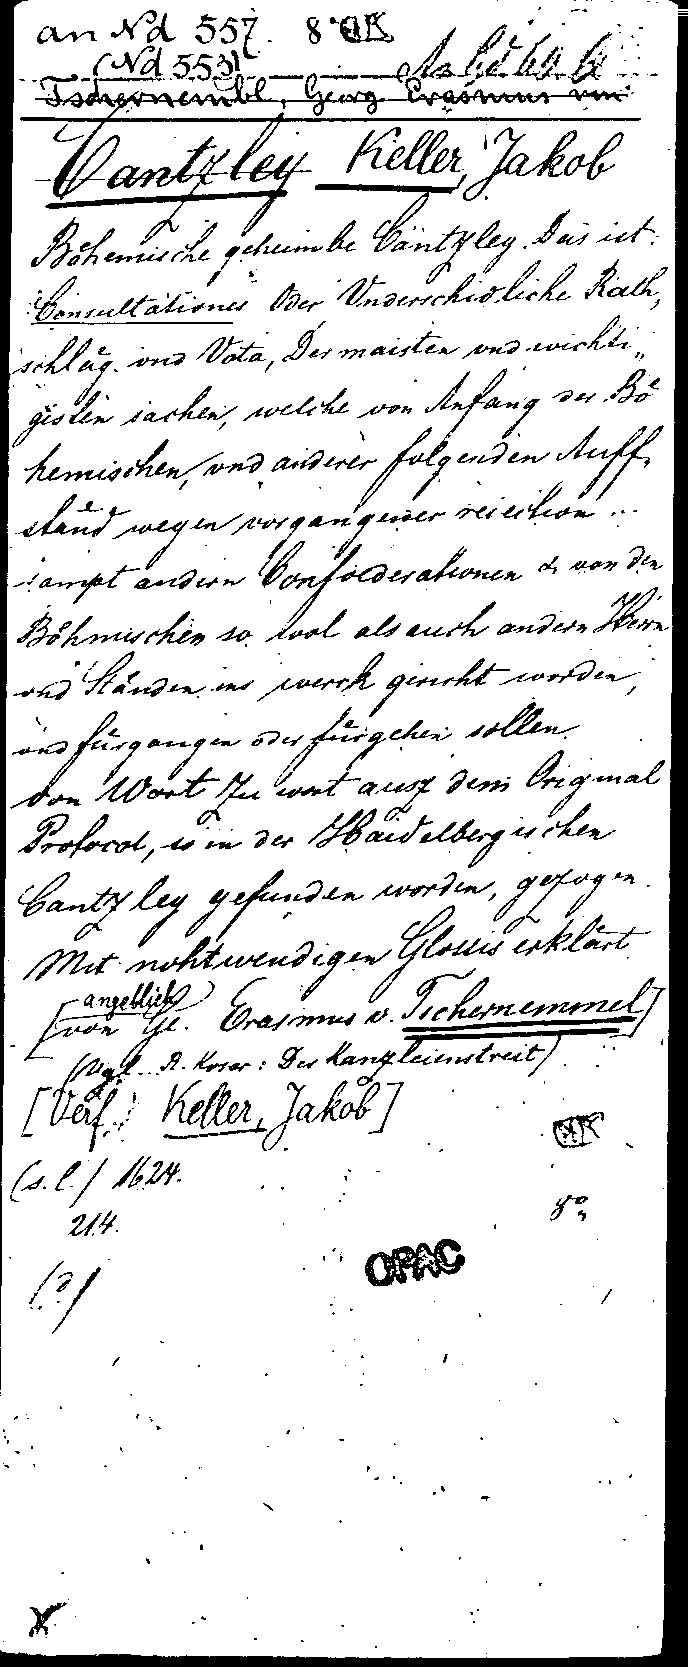 an Nd 557. 8° HK
(Nd 553)
Tschernembl, Georg Erasmus von
Cantzley Keller, Jakob
Böhemische geheimbe Cäntzley. Das ist:
Consultationes Oder Underschidliche Rath,
schläg. vnd Vota, Der maisten vnd wichti„
gisten sachen, welche von Anfang der Bö
hemischen, vnd anderer folgenden Auff„
ständ wegen vorgangener reiection ...
sampt andern Confoederationen & von den
Böhmischen so wol als auch andern Herrn
vnd Ständen ins werck gericht worden,
vnd fürgangen oder fürgehen sollen.
von Wort zu wort ausz dem Original
Protocol, so in der Haidelbergischen
Cantzley gefunden worden, gezogen.
Mit nohtwendigen Glossis erklärt
angeblich
[von Ge. Erasmus v. Tschernemmel]
(Vgl. R. Koser: Der Kanzleienstreit)
[Verf.: Keller, Jakob]
HK
(s. l.) 1624.
214. 8°
OPAC
(?)
X